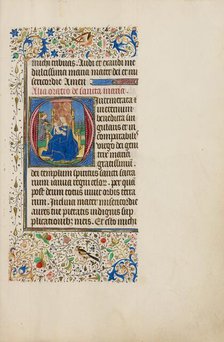 michi tribuas. Audi et exaudi me
dulcissima maria mater dei et mi
sericordie Amen
Alia oratio de sancta maria
Intemerata
in eternum
benedicta
singularis
et in compara
bilis virgo dei
genitrix maria
gratissimum
dei templum spiritus sancti sacra
rium ianua regni celorum per quam
post deum totus vivit orbis terra
rum Inclina mater misericordie
aures tue pietatis indignis sup
plicationibus meis. Et esto michi